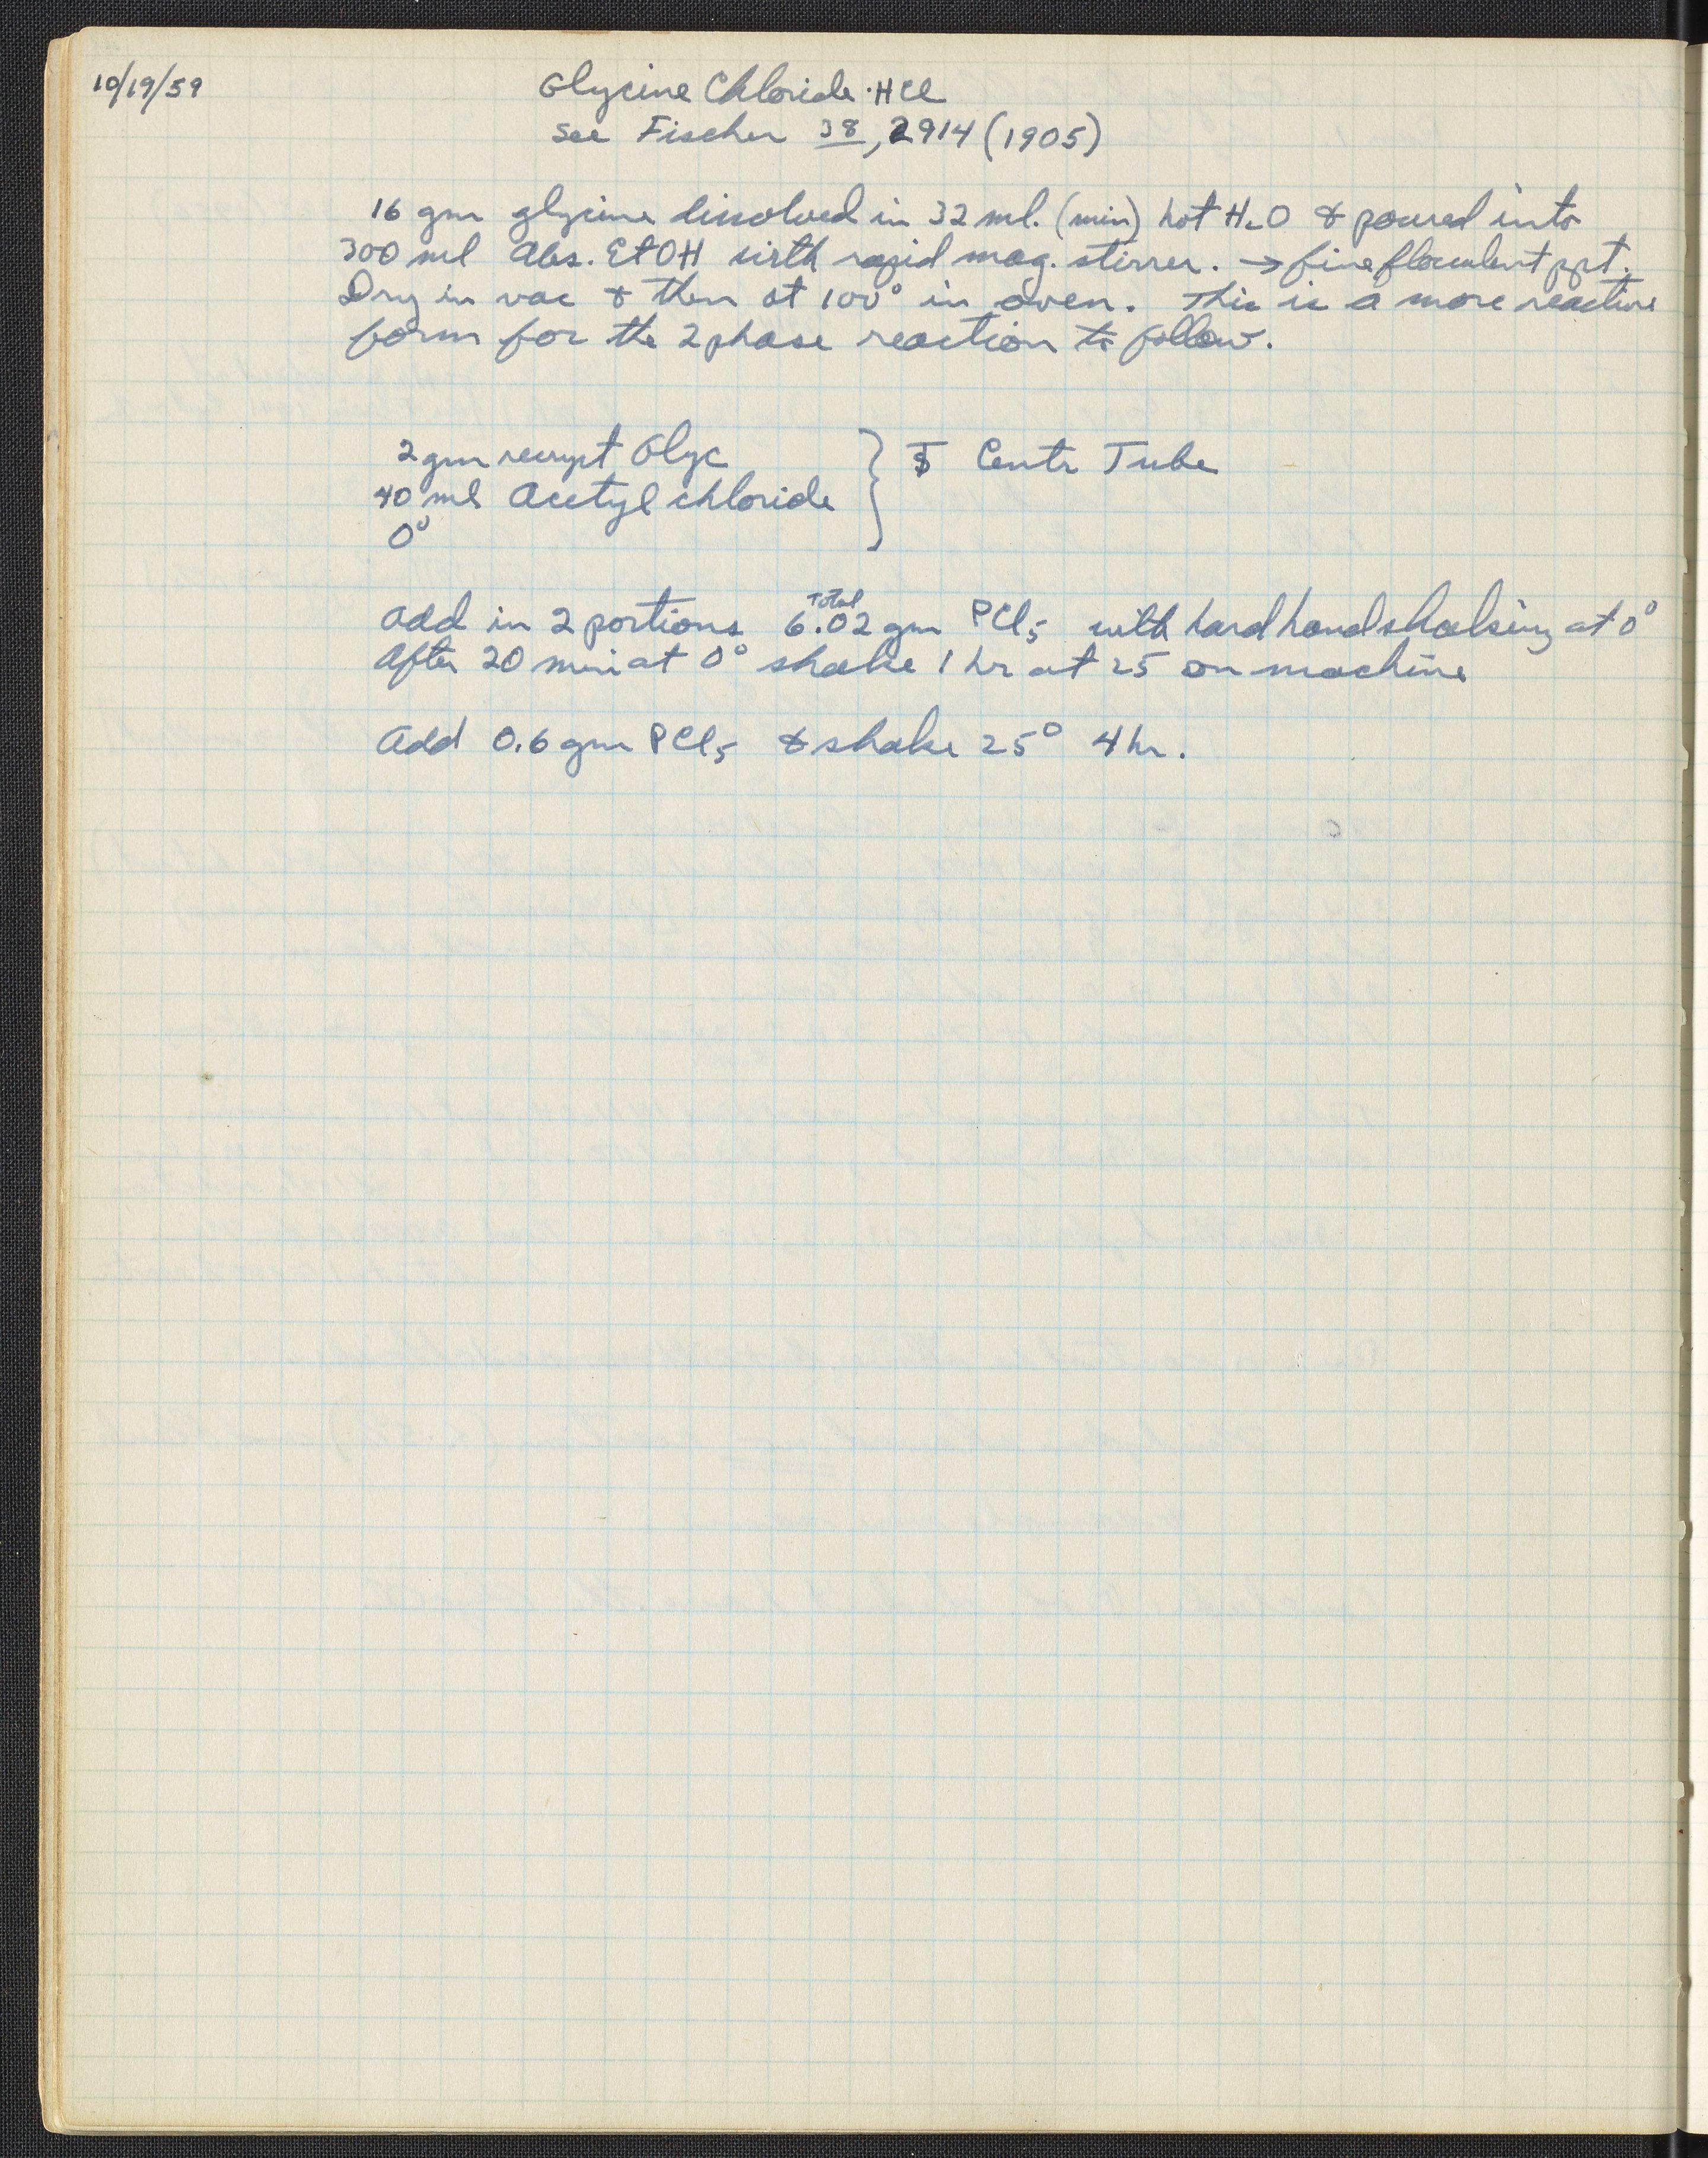 10/19/59
Glycine Chloride·HCl
See Fischer 38, 2914 (1905)
16 gm glycine dissolved in 32 ml. (min) hot H2O & poured into
300 ml Abs. EtOH with rapid mag. stirrer. → fine floculent ppt.
Dry in vac & then at 100° in oven. This is a more reactive
form for the 2 phase reaction to follow.
2 gm recryst Glyc
40 ml Acetyl chloride
0°
Centr Tube
Add in 2 portions Total 6.02 gm PCl5 with hard hand shaking at 0°
After 20 min at 0° shake 1 hr at 25 on machine
Add 0.6 gm PCl5 & shake 25° 4 hr.